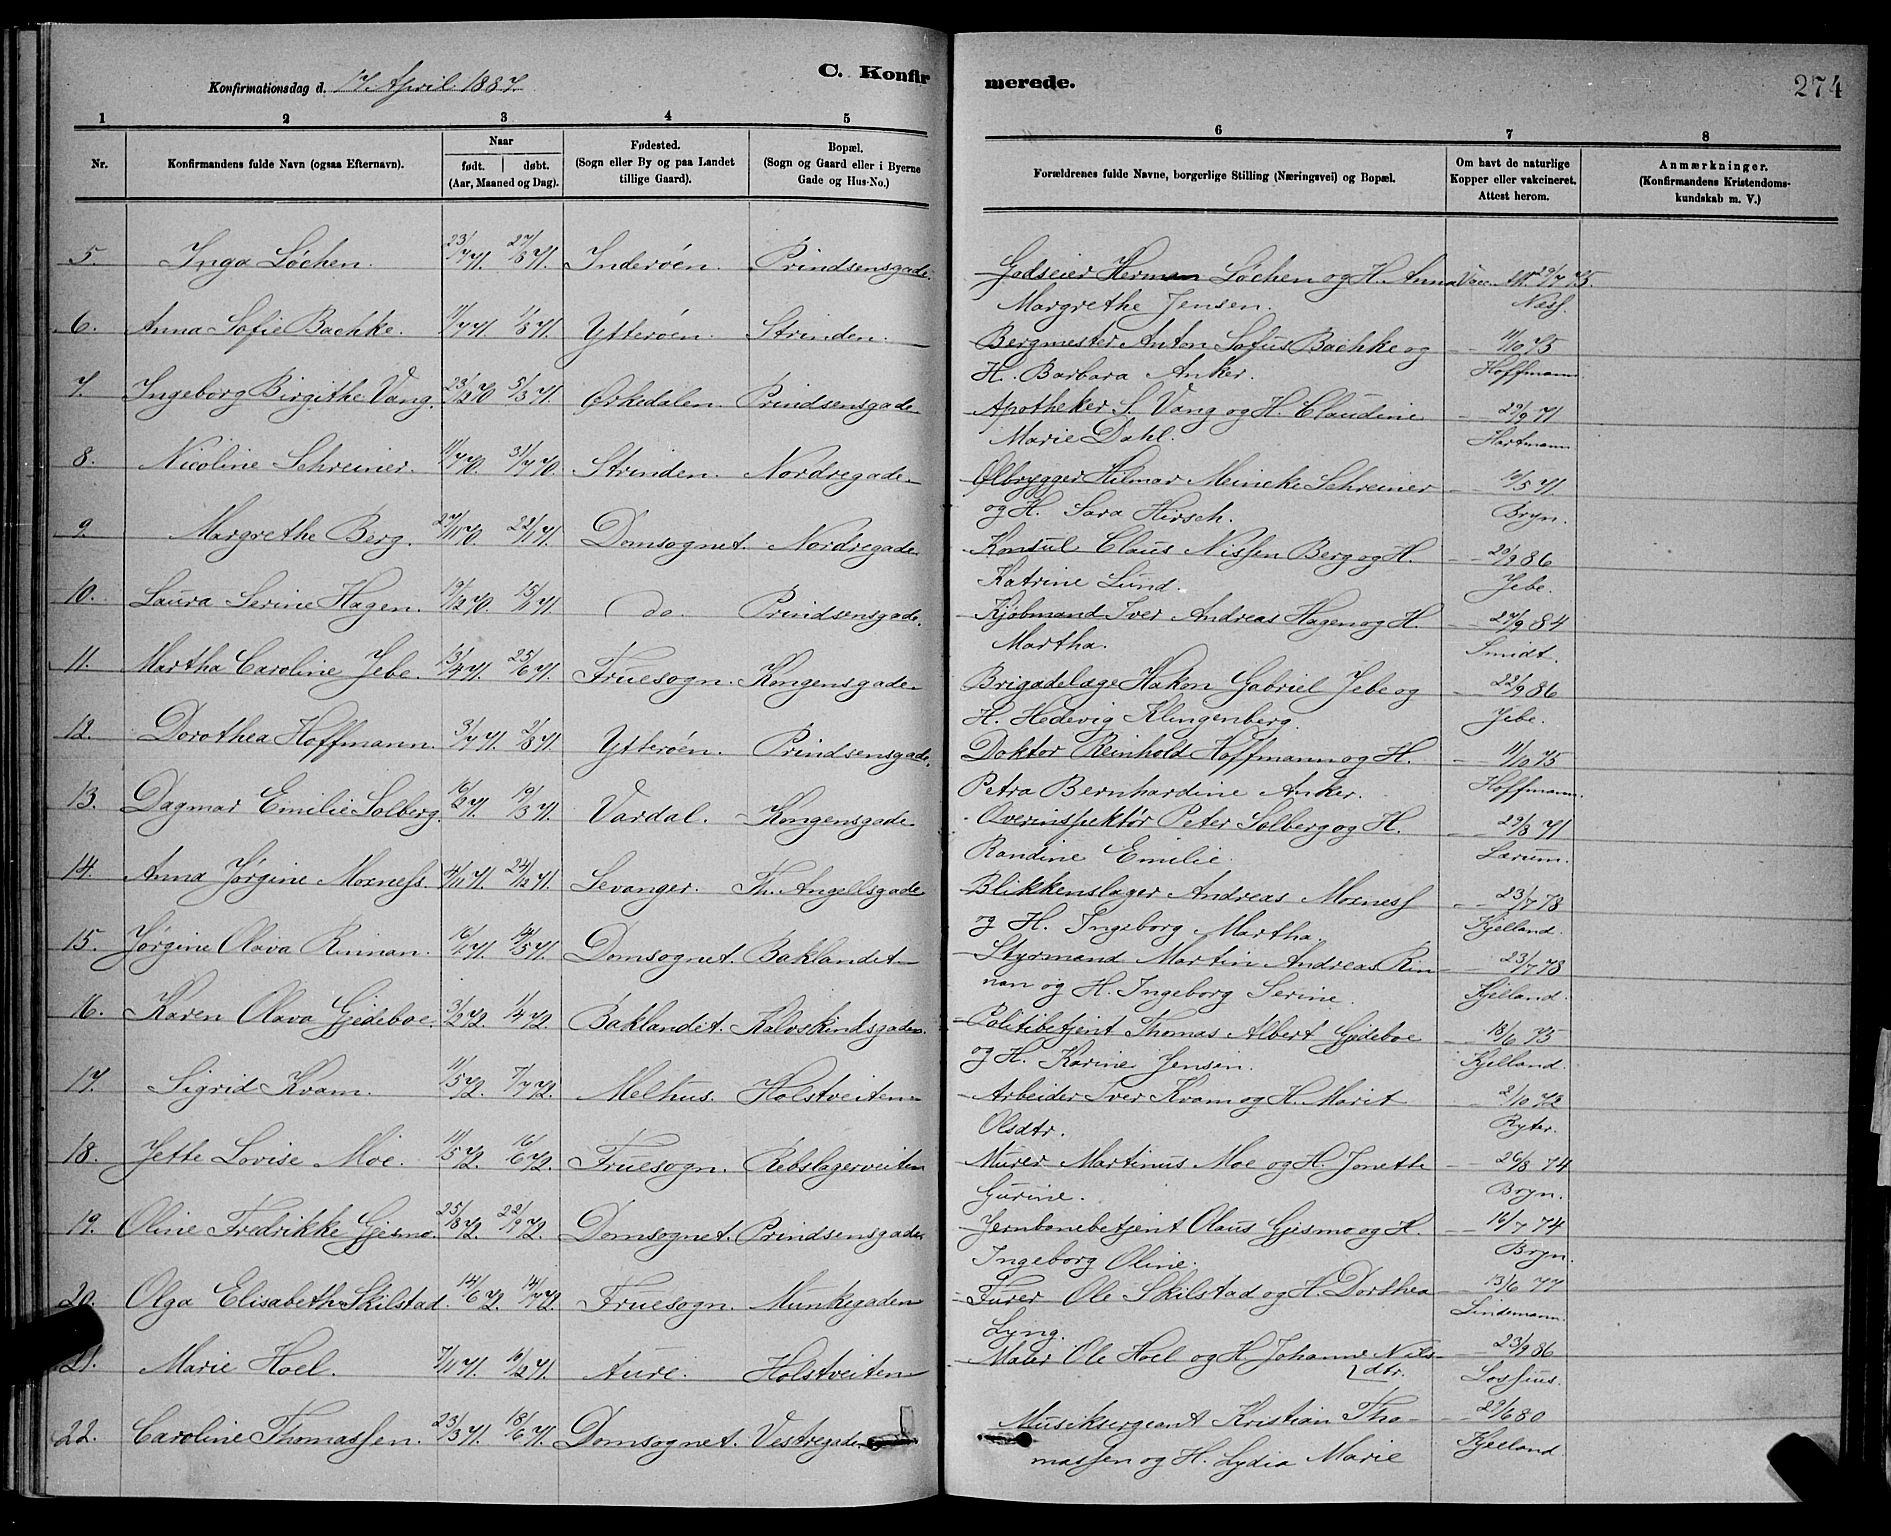 C. Konfir
merede.
274
Konfirmationsdag d. 17. April 1887.
1 2 3 4 5 6 7 8
Nr.
Konfirmandens fulde Navn (ogsaa Efternavn).
Naar
født. døbt.
(Aar, Maaned og Dag).
Fødested.
(Sogn eller By og paa Landet
tillige Gaard).
Bopæl.
(Sogn og Gaard eller i Byerne
Gade og Hus-No.)
Forældrenes fulde Navne, borgerlige Stilling (Næringsvei) og Bopæl.
Om havt de naturlige
Kopper eller vakcineret.
Attest herom.
Anmærkninger.
(Konfirmandens Kristendoms-
kundskab m. V.)
5. Inga Löchen. 23/7 71. 27/8 71. Inderöen. Prindsensgade. Godseier Herman Löchen og H. Anna Vac. Att 29/7 75
Margrethe Jensen. Ness.
6. Anna Sofie Bachke. Ytteröen. Strinden. Bergmester Anton Sofus Bachke og 11/10 75
H. Barbara Anker. Hoffmann.
7. Ingeborg Birgithe Vang. 23/12 70 5/3 71. Orkedalen. Prindsensgade Apotheker S. Vang og H. Claudine 29/9 71
Marie Dahl. Hartmann
8. Nicoline Schreiner. 11/7 70. 31/7 70. Strinden. Nordregade. Ølbrygger Hilmar Meineke Schreiner 16/5 71
og H. Sara Hirsch. Bryn.
9. Margrethe Berg. 27/11 70. 22/1 71. Domsognet. Nordregade Konsul Claus Nissen Berg og H. 20/9 86
Katrine Lund. Jebe.
10. Laura Serine Hagen. 19/12 70. 15/1 71. do. Prindsensgade. Kjöbmand Iver Andreas Hagen og H. 27/9 84
Martha. Smidt.
11. Martha Caroline Jebe. 13/4 71. 25/6 71. Fruesogn. Kongensgade. Brigadelæge Hakon Gabriel Jebe og 22/9 86
H. Hedevig Klingenberg. Jebe.
12. Dorothea Hoffmann. 3/7 71. 2/8 71. Ytteröen. Prindsensgade. Doktor Reinhold Hoffmann og H. 11/10 75
Petra Bernhardine Anker. Hoffmann.
13. Dagmar Emilie Solberg. 16/2 71. 19/3 71. Vardal. Kongensgade Overinspektør Peter Solberg og H. 29/8 71
Randine Emilie. Lærum.
14. Anna Jørgine Moxness. 4/11 71. 24/12 71. Levanger. Th. Angellsgade Blikkenslager Andreas Moxness 23/7 78
og H. Ingeborg Martha. Kjelland.
15. Jørgine Olava Rinnan. 16/1 71. 14/5 71. Domsognet. Baklandet Styrmand Martin Andreas Rin- 23/7 78
nan og H. Ingeborg Serine. Kjelland.
16. Karen Olava Gjedeboe. 3/2 72. 1/4 72. Baklandet. Kalvskindsgaden. Politibetjent Thomas Albert Gjedeboe 18/6 75
og H. Karine Jensen. Kjelland.
17. Sigrid Kvam. 11/5 72. 7/7 72. Melhus. Holstveiten Arbeider Iver Kvam og H. Marit 2/10 72
Olsdtr. Ryter.
18. Jette Lovise Moe. 11/5 72. 16/6 72. Fruesogn. Rebslagerveiten Murer Martinus Moe og H. Jonette 26/8 74
Gurine. Bryn.
19. Oline Fredrikke Gjesmo. 25/8 72. 22/9 72. Domsognet. Prindsensgaden Jernbanebetjent Olaus Gjesmo og H. 16/7 74
Ingeborg Oline. Bryn.
20. Olga Elisabeth Skilstad. 14/6 72. 14/7 72. Fruesogn. Munkegaden Furer Ole Skilstad og H. Dorthea 13/6 77
Lyng. Lindemann.
21. Marie Hoel. 7/11 71. Aure. Holstveiten Maler Ole Hoel og H. Johanne Nils- 23/9 86
dtr. Lossius.
22. Caroline Thomassen. 23/3 71. 18/6 71. Domsognet. Vestregaden Musiksergeant Kristian Tho- 29/6 80
massen og H. Lydia Marie Kjelland